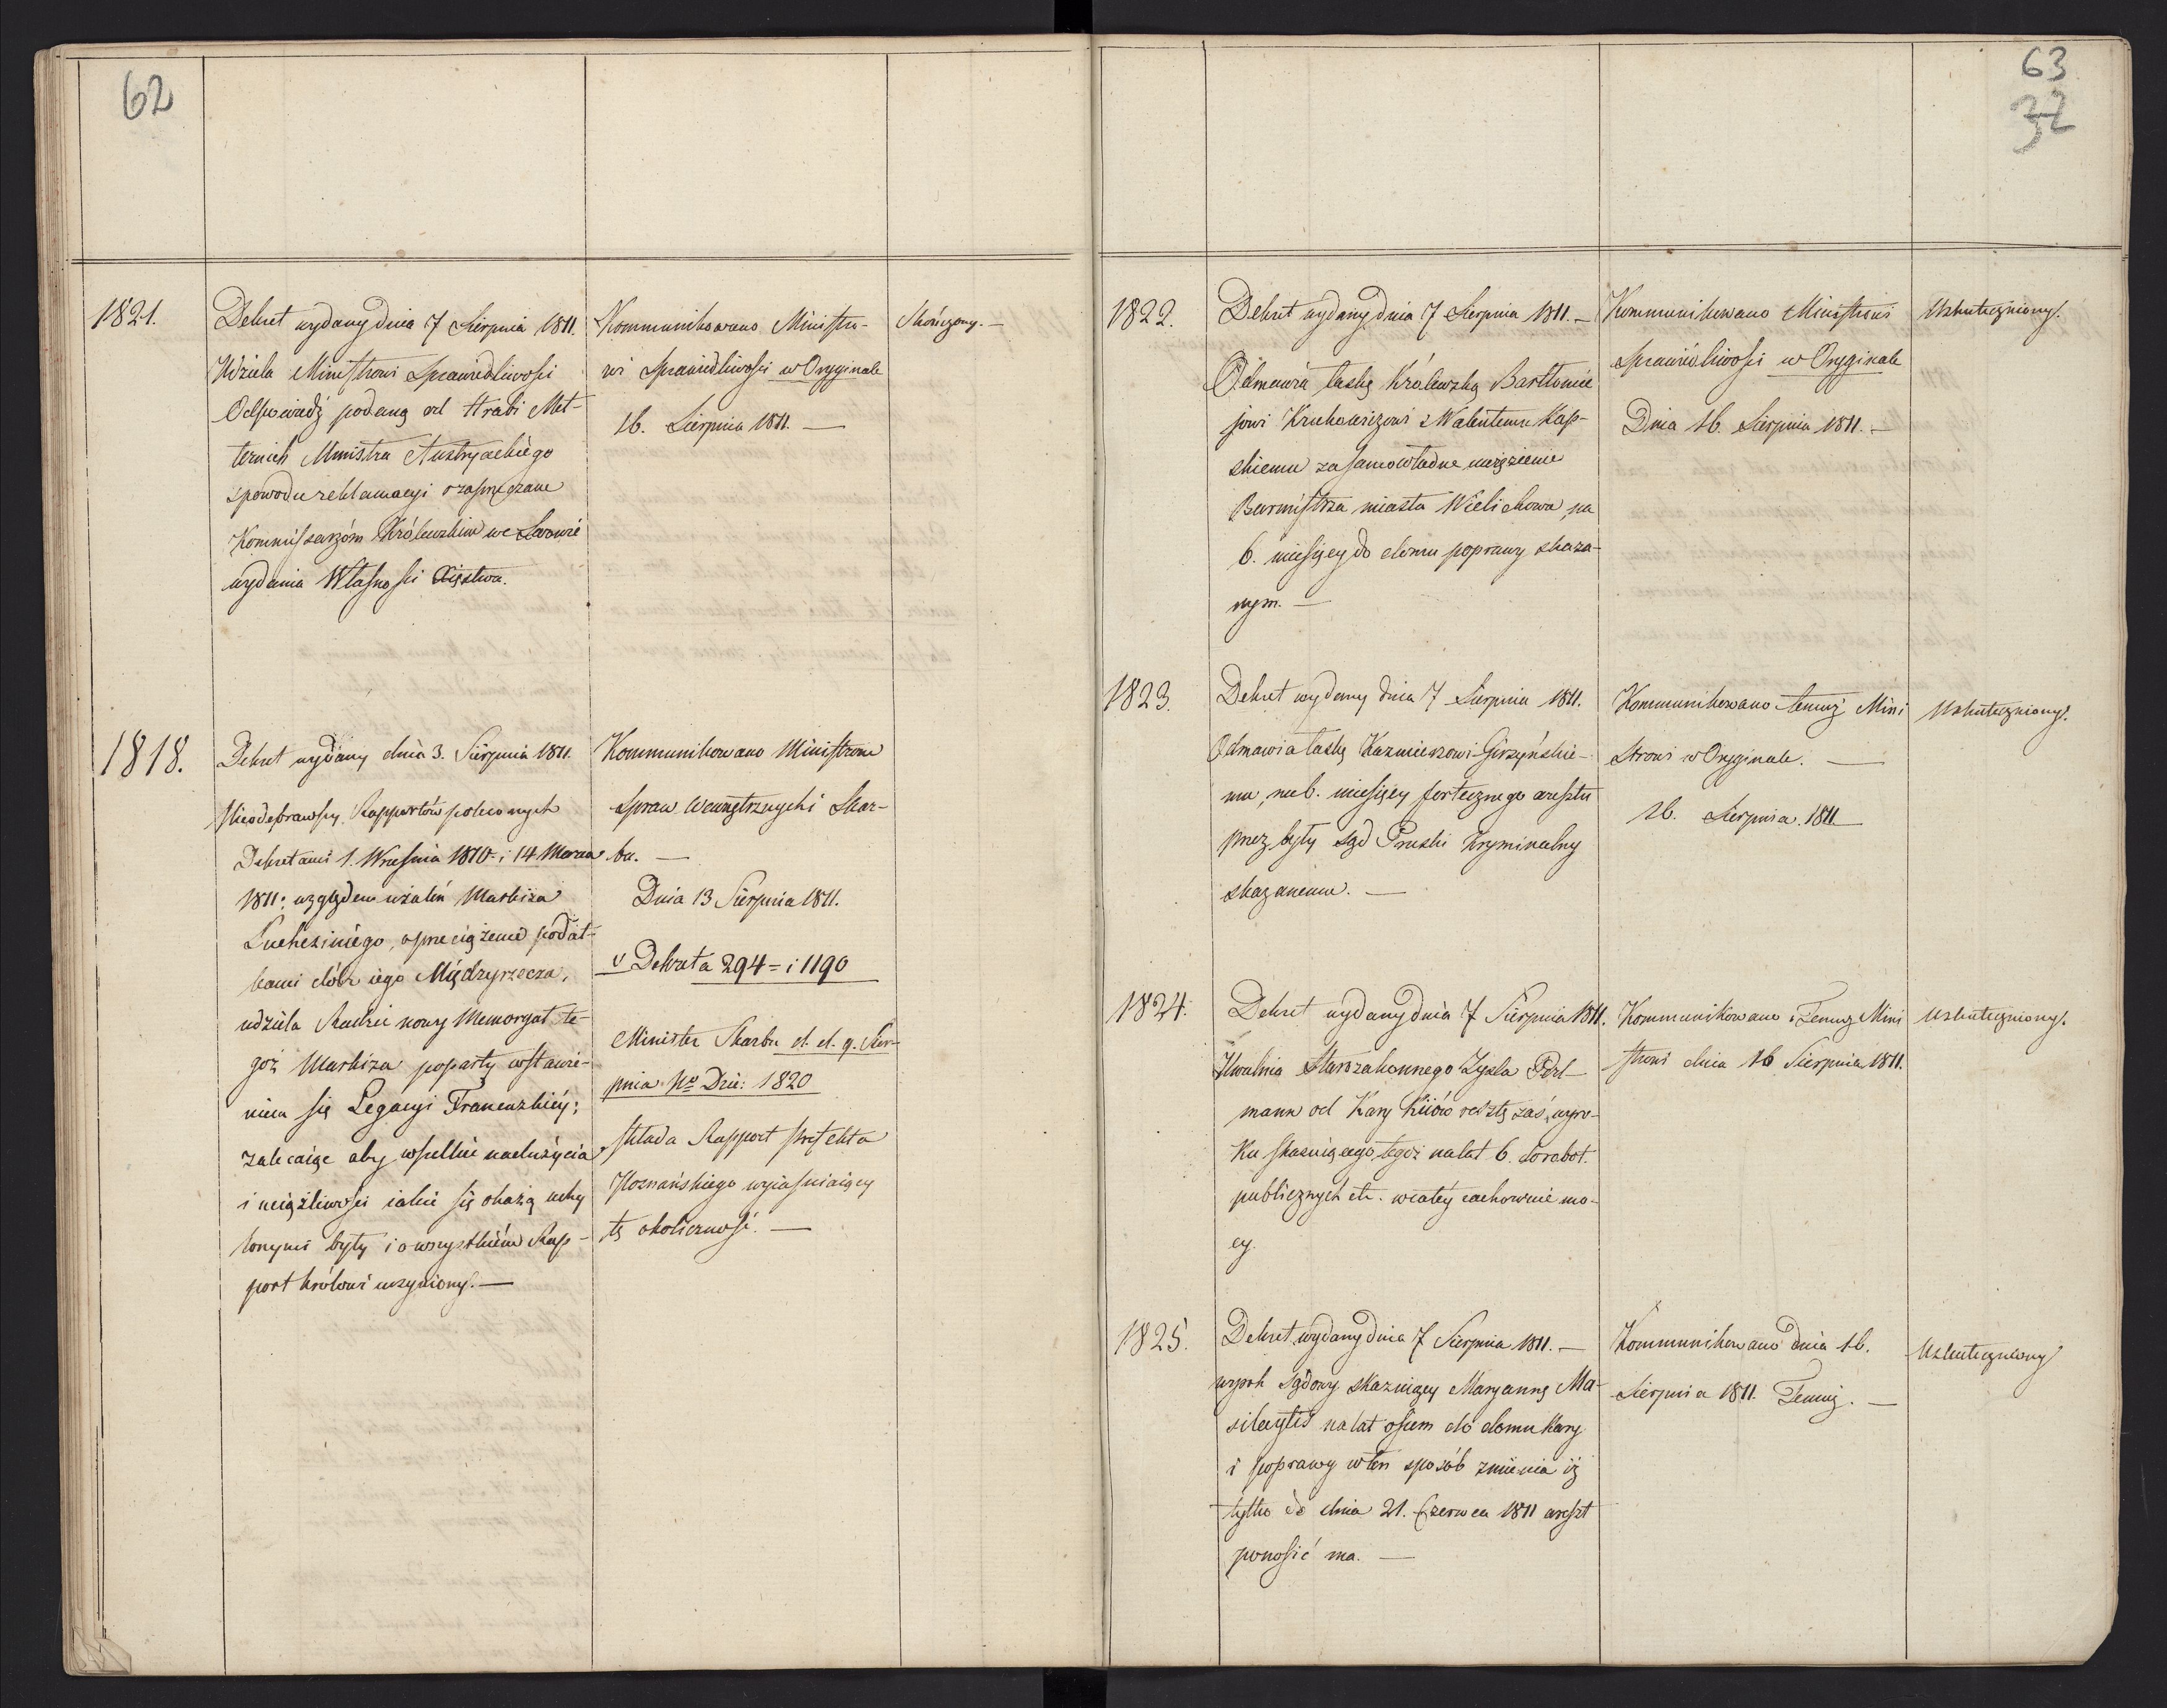 62
1821.
Dekret wydany dnia 7 Sierpnia 1811.
Udziela Ministrowi Sprawiedliwości
Odpowiedź podaną od Hrabi Met-
ternich Ministra Austryackiego
z powodu reklamacyi o zaprzeczane
Kommissarzóm Królewskim we Lwowie
wydania Własności Xięstwa.
Kommunikowano Ministro-
wi Sprawiedliwości w Oryginale
16. Sierpnia 1811. —
Skończony. —
1818.
Dekret wydany dnia 3. Sierpnia 1811.
Nieodebrawszy Rapportów poleconych
Dekretami 1. Września 1810 i 14 Marca
1811: względem użaleń Markiza
Lucheziniego, o przeciążenie podat-
kami dóbr iego Międzyrzecza,
udziela Radzie nowy Memoryał te-
goż Markiza poparty wstawie-
niem się Legacyi Francuzkiéy;
zalecaiąc aby wszelkie nadużycia
i uciążliwości iakie się okażą uchy
lonymi były i o wszystkiém Rap-
port królowi uczyniony. —
Kommunikowano Ministrom
Spraw Wewnętrznych i Skar-
bu. —
Dnia 13 Sierpnia 1811.
v Dekreta 294 = i 1190
Minister Skarbu d. d. 9. Sier-
pnia No Dzie: 1820
składa Rapport Prefekta
Poznańskiego wyiaśniaiący
tę okoliczność. —
63
32
1822.
Dekret wydany dnia 7 Sierpnia 1811. —
Odmawia łaskę Królewską Bartłomie
jowi Krukowiczowi i Walentemu Kap-
skiemu za samowładne uwięzienie
Burmistrza miasta Wielichowa, na
6. miesięcy do domu poprawy skaza-
nym. —
Kommunikowano Ministrowi
Sprawiedliwości w Oryginale
Dnia 16. Sierpnia 1811. —
Uskuteczniony.
1823.
Dekret wydany dnia 7 Sierpnia 1811.
Odmawia łaskę Kazmierzowi Girzyńskie-
mu, na 6. miesięcy fortecznego aresztu
przez były sąd Pruski Kryminalny
skazanemu. —
Kommunikowano temuż Mini
strowi w Oryginale. —
16. Sierpnia 1811 —
Uskuteczniony.
1824.
Dekret wydany dnia 7 Sierpnia 1811.
Uwalnia Starozakonnego Zysla Perl-
mann od Kary Kiiów resztę zaś, wyro-
ku skazuiącego tegoż na lat 6. do robot.
publicznych etc. w całéy zachowuie mo-
cy.
Kommunikowano Temuż Mini
strowi dnia 16 Sierpnia 1811.
Uskuteczniony.
1825.
Dekret wydany dnia 7 Sierpnia 1811. —
wyrok Sądowy skazuiący Maryannę Ma-
silaytis na lat ośiem do domu Kary
i poprawy w ten sposób zmienia iż
tylko do dnia 21. Czerwca 1811 areszt
ponosić ma. —
Kommunikowano dnia 16.
Sierpnia 1811. Temuż. —
Uskuteczniony